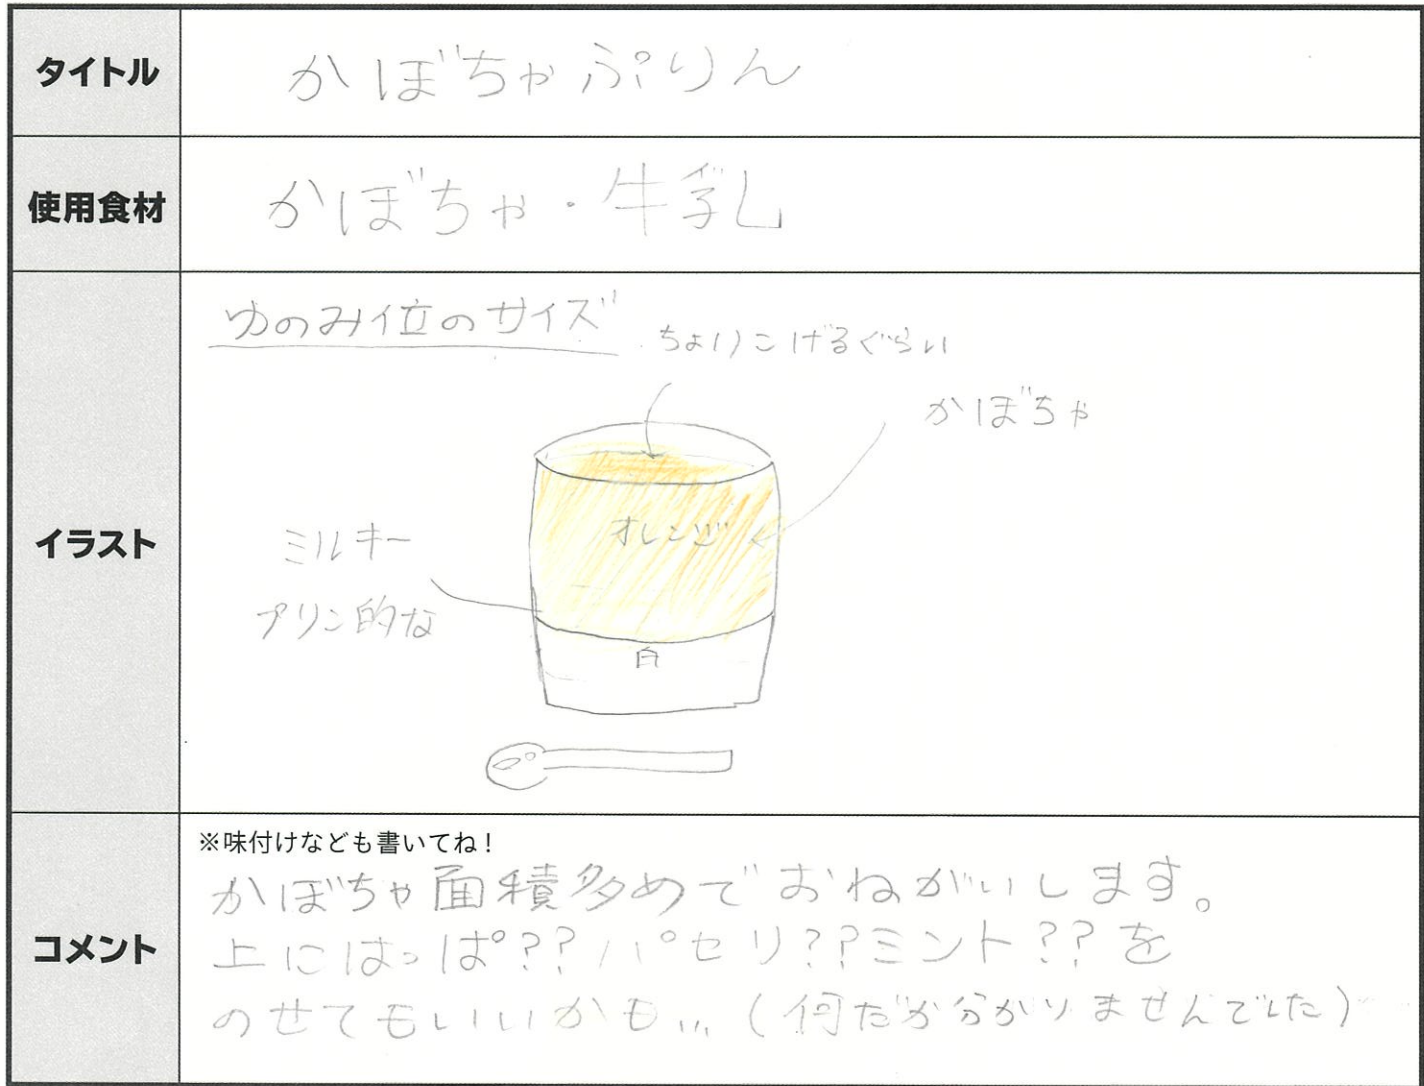 タイトル
かぼちゃぷりん
使用食材
かぼちゃ・牛乳
イラスト
ゆのみ位のサイズ
ちょいこげるぐらい
かぼちゃ
オレンジ
ミルキー
プリン的な
白
コメント
※味付けなども書いてね！
かぼちゃ面積多めでおねがいします。
上にはっぱ??パセリ??ミント??を
のせてもいいかも…(何だか分かりませんでした)